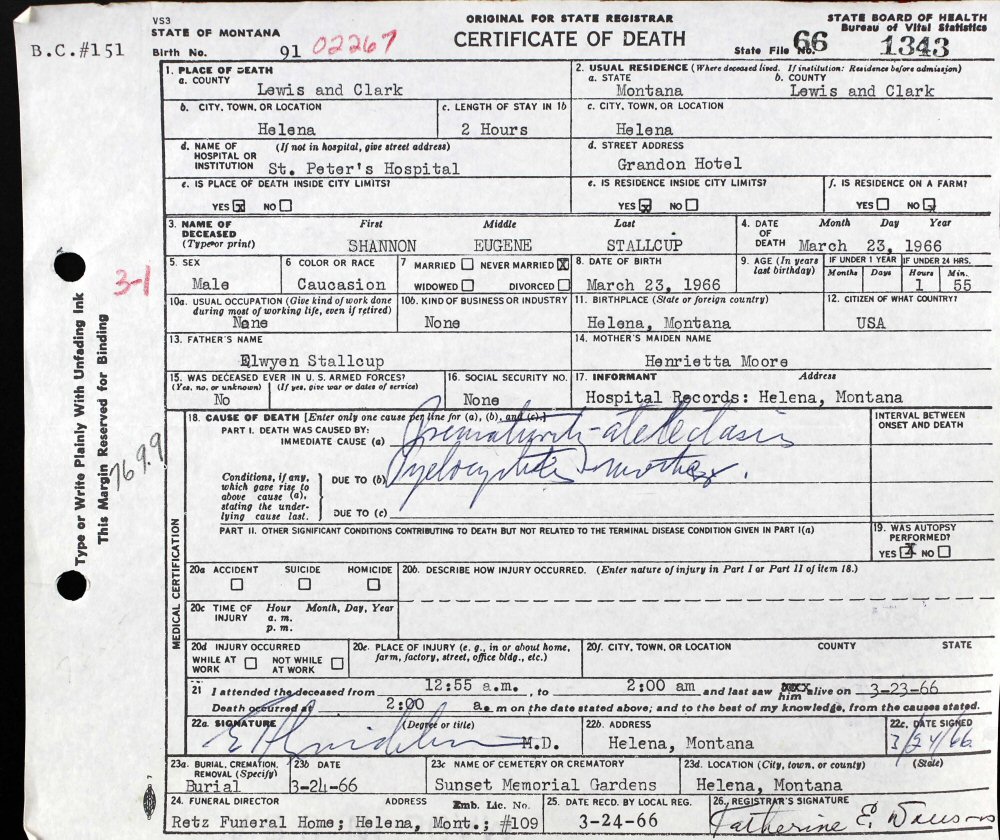 VS3
STATE OF MONTANA
ORIGINAL FOR STATE REGISTRAR
CERTIFICATE OF DEATH
STATE BOARD OF HEALTH
Bureau of Vital Statistics
B.C.#151
Birth No. 91 02267
State File No. 66 1343
1. PLACE OF DEATH
a. COUNTY
Lewis and Clark
2. USUAL RESIDENCE (Where deceased lived. If institution: Residence before admission)
a. STATE b. COUNTY
Montana Lewis and Clark
b. CITY, TOWN, OR LOCATION
Helena
c. LENGTH OF STAY IN 1b
2 Hours
c. CITY, TOWN, OR LOCATION
Helena
d. NAME OF HOSPITAL OR INSTITUTION (If not in hospital, give street address)
St. Peter's Hospital
d. STREET ADDRESS
Grandon Hotel
e. IS PLACE OF DEATH INSIDE CITY LIMITS?
YES X NO
e. IS RESIDENCE INSIDE CITY LIMITS?
YES X NO
f. IS RESIDENCE ON A FARM?
YES NO X
3. NAME OF DECEASED (Type or print)
First Middle Last
SHANNON EUGENE STALLCUP
4. DATE OF DEATH Month Day Year
March 23, 1966
5. SEX
Male
6 COLOR OR RACE
Caucasion
7 MARRIED NEVER MARRIED X
WIDOWED DIVORCED
8. DATE OF BIRTH
March 23, 1966
9. AGE (In years last birthday)
IF UNDER 1 YEAR IF UNDER 24 HRS.
Months Days Hours Min.
1 55
10a. USUAL OCCUPATION (Give kind of work done during most of working life, even if retired)
None
10b. KIND OF BUSINESS OR INDUSTRY
None
11. BIRTHPLACE (State or foreign country)
Helena, Montana
12. CITIZEN OF WHAT COUNTRY?
USA
13. FATHER'S NAME
Elwyen Stallcup
14. MOTHER'S MAIDEN NAME
Henrietta Moore
15. WAS DECEASED EVER IN U. S. ARMED FORCES?
(Yes, no, or unknown) (If yes, give war or dates of service)
No
16. SOCIAL SECURITY NO.
None
17. INFORMANT Address
Hospital Records: Helena, Montana
18. CAUSE OF DEATH [Enter only one cause per line for (a), (b), and (c).]
INTERVAL BETWEEN ONSET AND DEATH
PART I. DEATH WAS CAUSED BY:
IMMEDIATE CAUSE (a) Prematurity - atelectasis
Conditions, if any, which gave rise to above cause (a), stating the under-lying cause last.
DUE TO (b) mother.
DUE TO (c)
PART II. OTHER SIGNIFICANT CONDITIONS CONTRIBUTING TO DEATH BUT NOT RELATED TO THE TERMINAL DISEASE CONDITION GIVEN IN PART I(a)
19. WAS AUTOPSY PERFORMED?
YES X NO
MEDICAL CERTIFICATION
20a ACCIDENT SUICIDE HOMICIDE
20b. DESCRIBE HOW INJURY OCCURRED. (Enter nature of injury in Part I or Part II of item 18.)
20c TIME OF INJURY Hour Month, Day, Year
a. m.
p. m.
20d INJURY OCCURRED
WHILE AT WORK NOT WHILE AT WORK
20e. PLACE OF INJURY (e. g., in or about home, farm, factory, street, office bldg., etc.)
20f. CITY, TOWN, OR LOCATION COUNTY STATE
21 I attended the deceased from 12:55 a.m., to 2:00 am and last saw him alive on 3-23-66
Death occurred at 2:00 a. m on the date stated above; and to the best of my knowledge, from the causes stated.
22a. SIGNATURE (Degree or title)
M.D.
22b. ADDRESS
Helena, Montana
22c. DATE SIGNED
3/24/66
23a. BURIAL, CREMATION, REMOVAL (Specify)
Burial
23b DATE
3-24-66
23c NAME OF CEMETERY OR CREMATORY
Sunset Memorial Gardens
23d. LOCATION (City, town, or county) (State)
Helena, Montana
24. FUNERAL DIRECTOR ADDRESS Emb. Lic. No.
Retz Funeral Home; Helena, Mont.; #109
25. DATE RECD. BY LOCAL REG.
3-24-66
26. REGISTRAR'S SIGNATURE
Katherine E. Dawson
Type or Write Plainly With Unfading Ink
This Margin Reserved for Binding
3-1
769.9
7